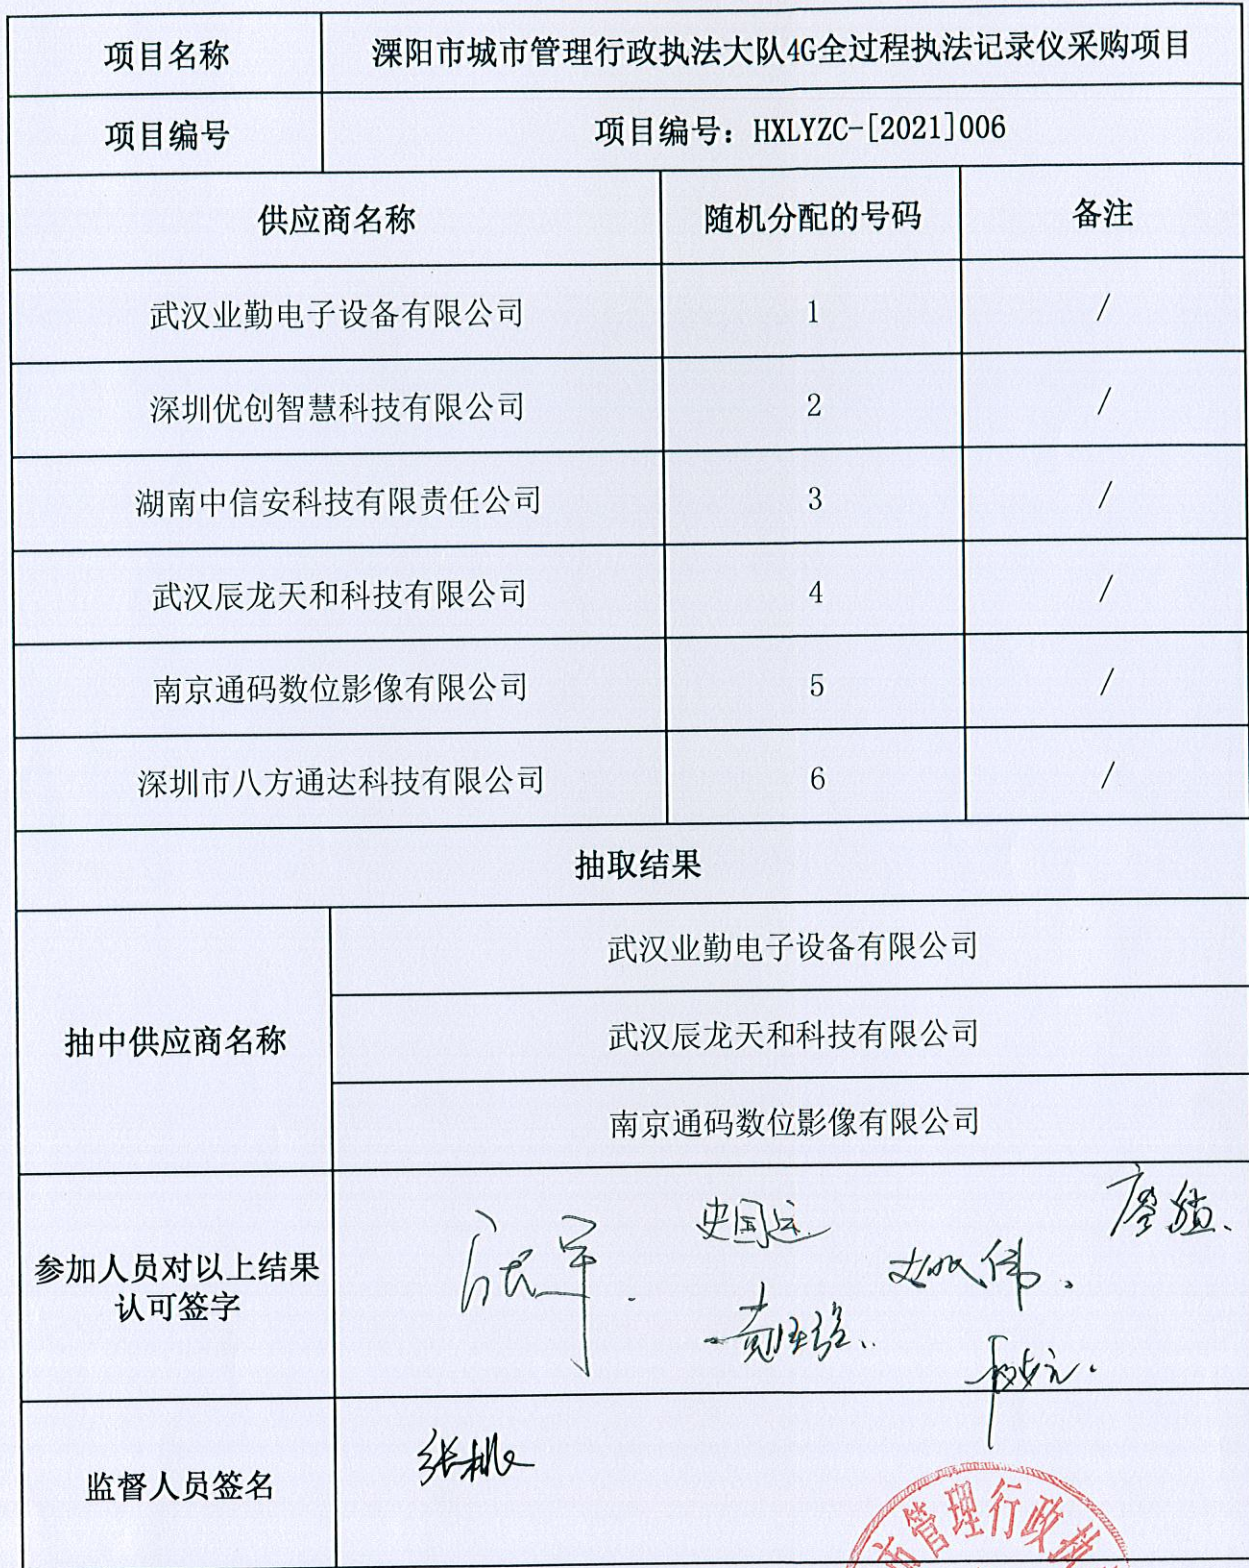 项目名称
溧阳市城市管理行政执法大队4G全过程执法记录仪采购项目
项目编号
项目编号：HXLYZC-[2021]006
供应商名称
随机分配的号码
备注
武汉业勤电子设备有限公司
1
/
深圳优创智慧科技有限公司
2
/
湖南中信安科技有限责任公司
3
/
武汉辰龙天和科技有限公司
4
/
南京通码数位影像有限公司
5
/
深圳市八方通达科技有限公司
6
/
抽取结果
抽中供应商名称
武汉业勤电子设备有限公司
武汉辰龙天和科技有限公司
南京通码数位影像有限公司
参加人员对以上结果
认可签字
史国运
监督人员签名
市管理行政执